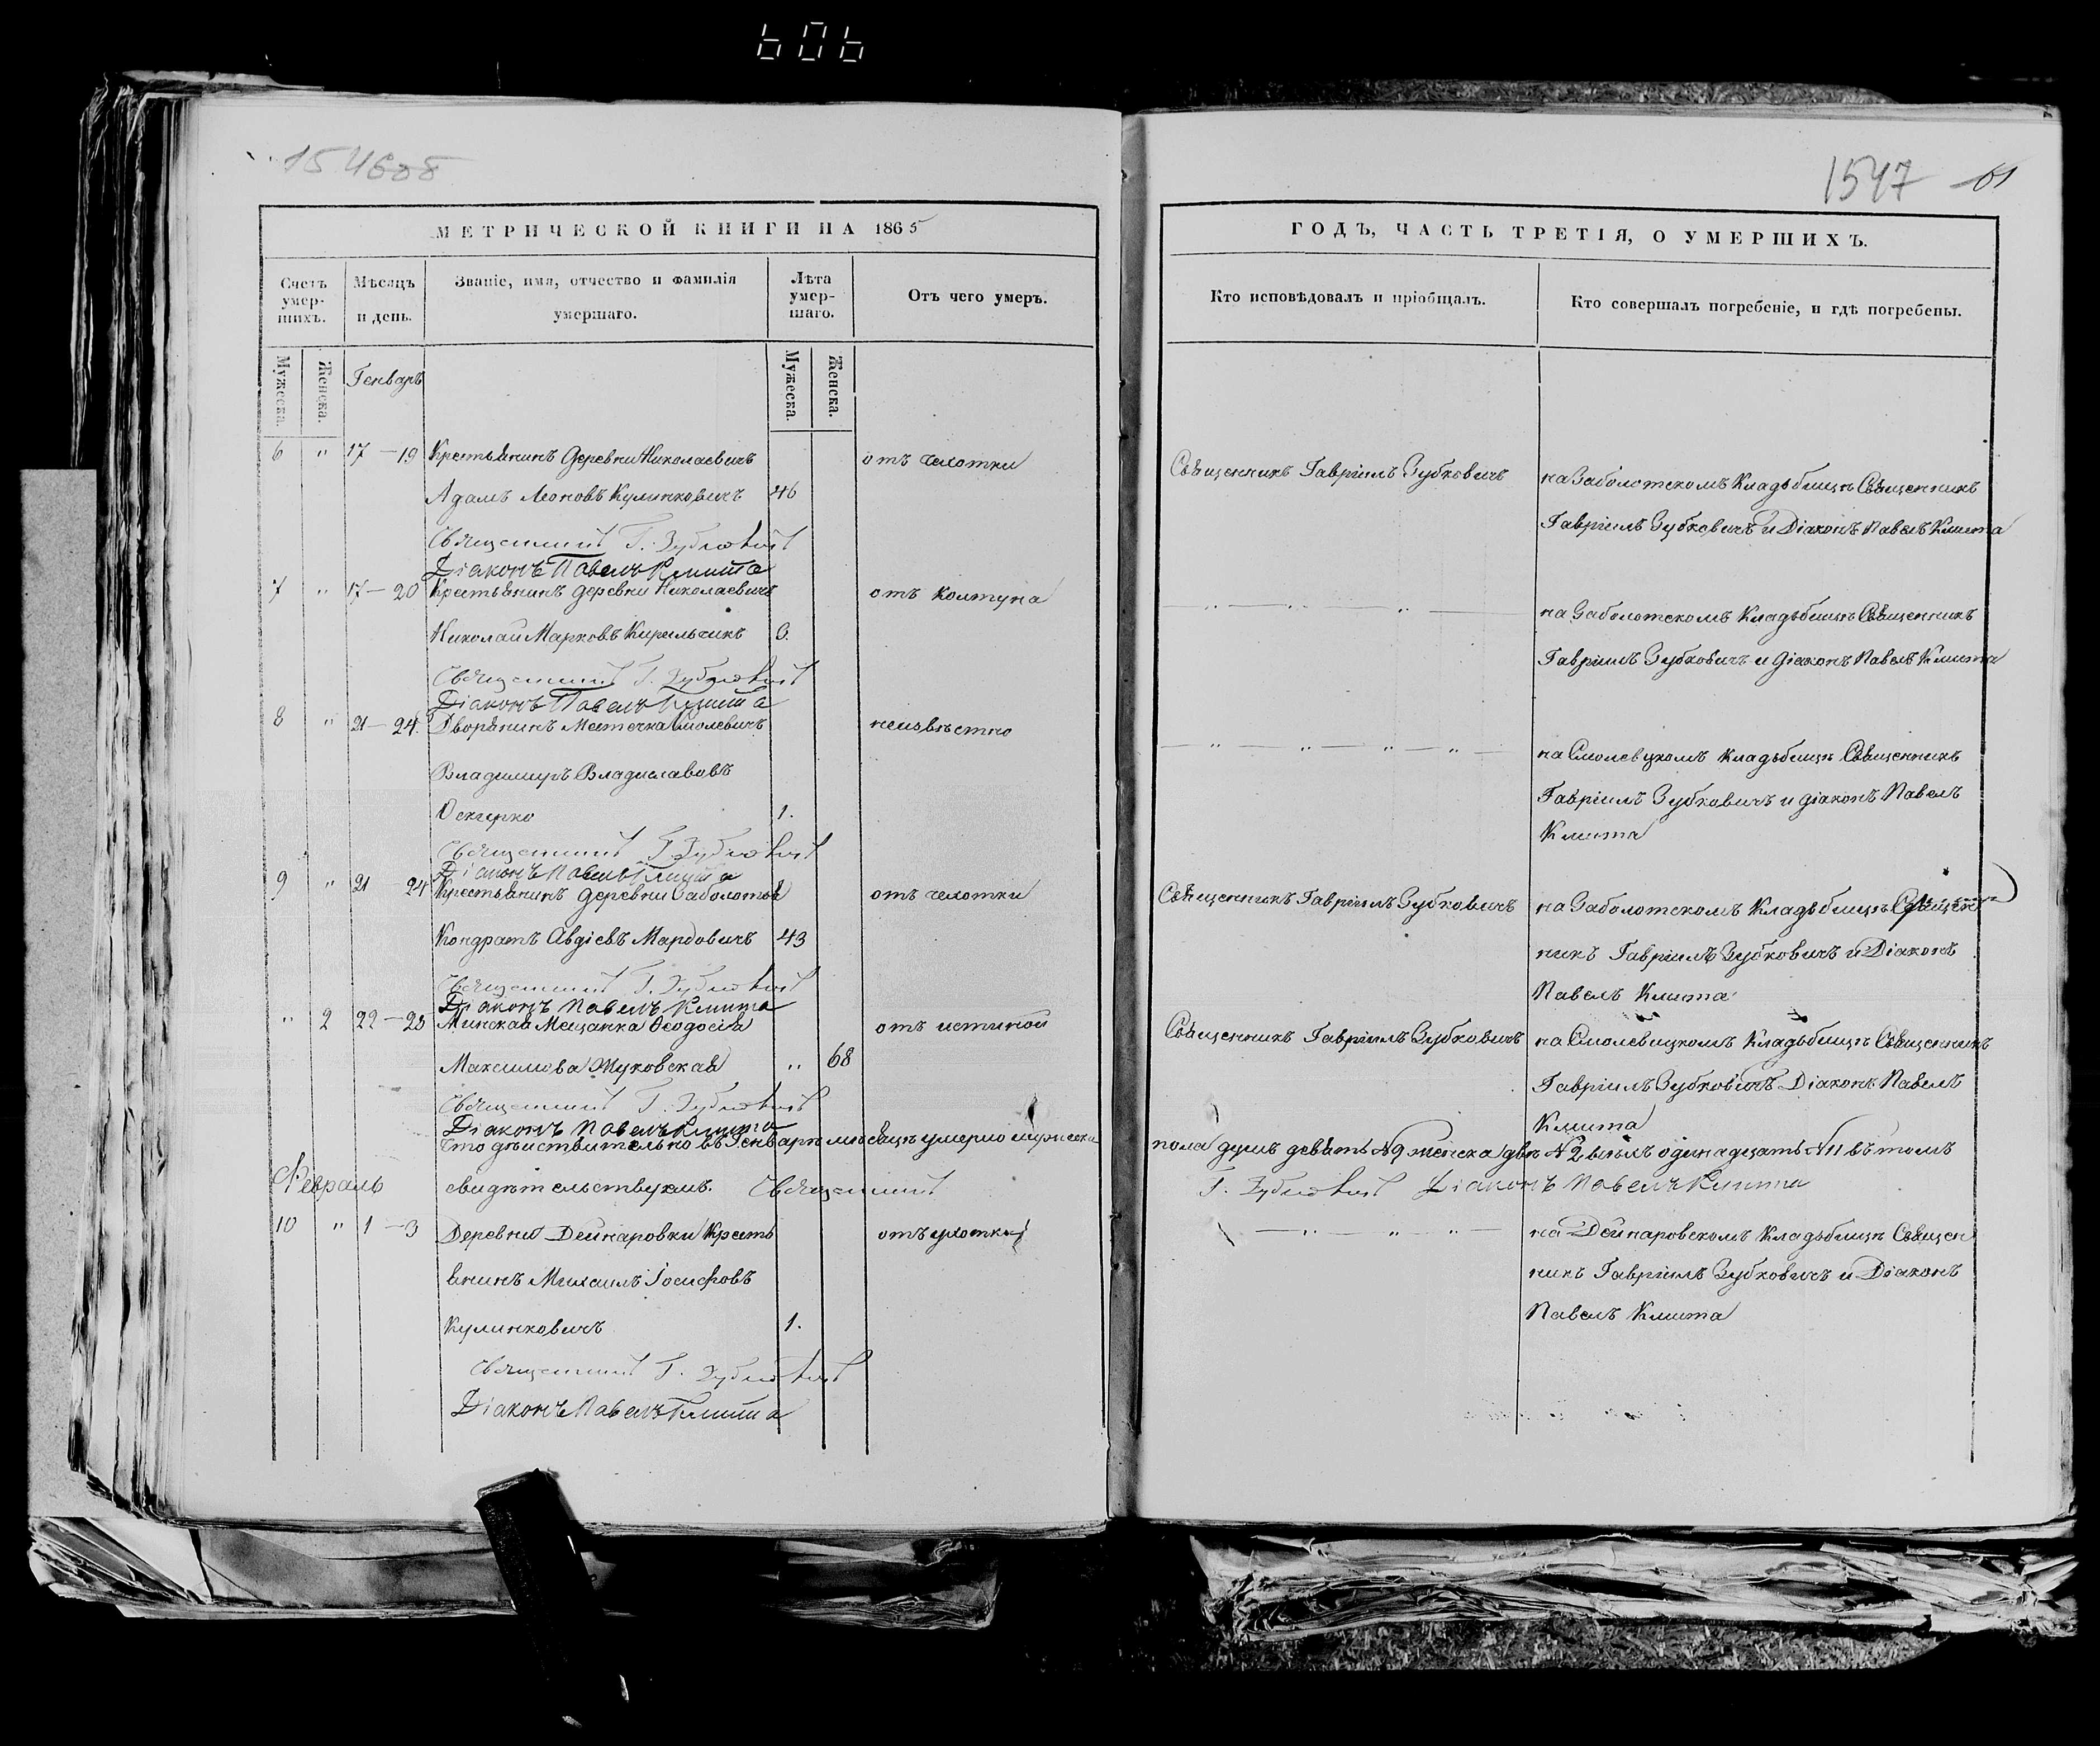 606
1547
61
МЕТРИЧЕСКОЙ КНИГИ НА 1865
ГОДЪ, ЧАСТЬ ТРЕТІЯ, О УМЕРШИХЪ.
Счетъ умер-
шихъ.
Мѣсяцъ
и день.
Званіе, имя, отчество и фамилія
умершаго.
Лѣта
умер-
шаго.
Отъ чего умеръ.
Кто исповѣдовалъ и пріобщалъ.
Кто совершалъ погребеніе, и гдѣ погребены.
Мужеска.
Женска.
Генварь
Мужеска.
Женска.
6 " 17 — 19 Крестьянинъ деревни Николаевичъ
Адамъ Леоновъ Кулинковичъ 46
отъ чехотки
Священникъ Гавріилъ Зубковичъ
на Заболотскомъ Кладбищѣ Священникъ
Гавріилъ Зубковичъ и Діаконъ Павелъ Клишта
Священникъ Г. Зубковичъ
Діаконъ Павелъ Клишта
7 " 17 — 20 Крестьянинъ деревни Николаевичъ
Николай Марковъ Кирильчикъ 6.
отъ колтуна
— " — " — " —
на Заболотскомъ Кладьбищѣ Священникъ
Гавріилъ Зубковичъ и діаконъ Павелъ Клишта
Священникъ Г. Зубковичъ
Діаконъ Павелъ Клишта
8 " 21 — 24. Дворянинъ Местечка Смолевичъ
Владимиръ Владиславовъ
1.
неизвѣстно
— " — " — " — " —
на Смолевцкомъ кладьбищѣ Священникъ
Гавріилъ Зубковичъ и діаконъ Павелъ
Клишта
Священникъ Г. Зубковичъ
Діаконъ Павелъ Клишта
9 " 21 24 Крестьянинъ деревни Заболотья
Кондратъ Авдіевъ Мардовичъ 43
отъ чехотки
Священникъ Гавріилъ Зубковичъ
на Заболотскомъ Кладьбищѣ Священ-
никъ Гавріилъ Зубковичъ и Діаконъ
Павелъ Клишта
Священникъ Г. Зубковичъ
Діаконъ Павелъ Клишта
" 2 22 — 25 Минская Мещанка Ѳеодосія
Максимова Жуковская " 68
отъ
Священникъ Гавріилъ Зубковичъ
на Смолевицкомъ Кладьбищѣ Священникъ
Гавріилъ Зубковичъ Діаконъ Павелъ
Клишта
Священникъ Г. Зубковичъ
Діаконъ Павелъ Клишта
Что дѣйствительно въ Генварѣ мѣсяцѣ умерло мужеска пола душъ девять № 9 женска двѣ № 2 всѣхъ одинадцать № 11 въ томъ
свидѣтельствуемъ. Священникъ Г. Зубковичъ Діаконъ Павелъ Клишта
Февраль
10 " 1 — 3 Деревни Дейнаровки Кресть
янинъ Михаилъ Іосифовъ
Кулинковичъ 1.
отъ чехотки
— " — " " —
на Дейнаровскомъ Кладьбищѣ Священ
никъ Гавріилъ Зубковичъ и Діаконъ
Павелъ Клишта
Священникъ Г. Зубковичъ
Діаконъ Павелъ Клишта